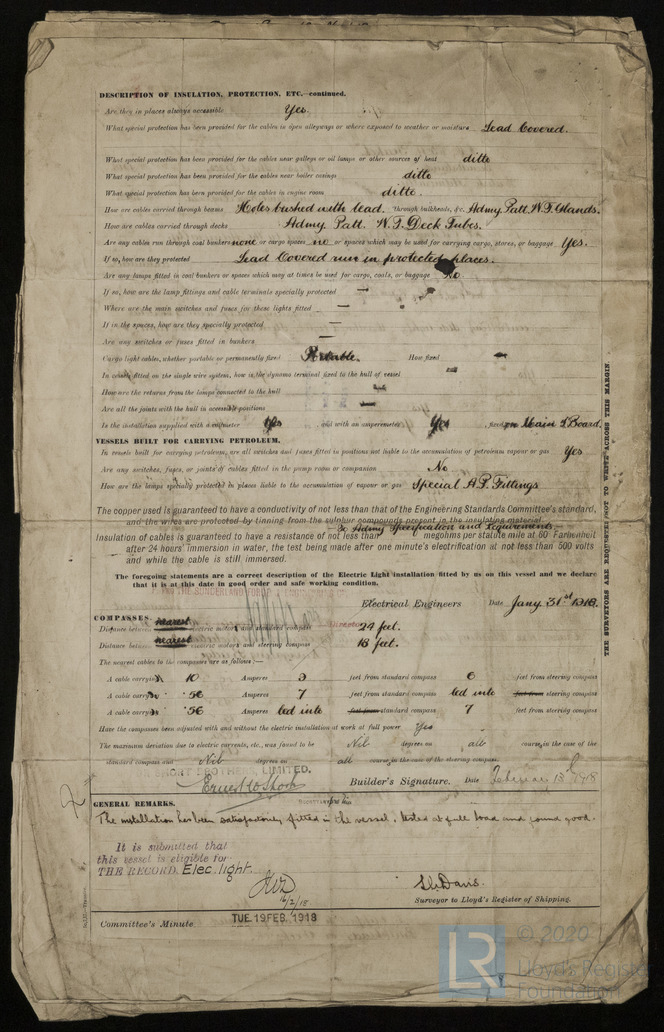 DESCRIPTION OF INSULATION, PROTECTION, ETC.—continued.
Are they in places always accessible Yes.
What special protection has been provided for the cables in open alleyways or where exposed to weather or moisture Lead Covered.
What special protection has been provided for the cables near galleys or oil lamps or other sources of heat ditto
What special protection has been provided for the cables near boiler casings ditto
What special protection has been provided for the cables in engine room ditto.
How are cables carried through beams Holes bushed with lead. through bulkheads, &c. Admy. Patt. W.T. Glands.
How are cables carried through decks Admy. Patt. W.T. Deck Tubes.
Are any cables run through coal bunkers none or cargo spaces no or spaces which may be used for carrying cargo, stores, or baggage Yes.
If so, how are they protected Lead Covered run in protected places.
Are any lamps fitted in coal bunkers or spaces which may at times be used for cargo, coals, or baggage No.
If so, how are the lamp fittings and cable terminals specially protected —
Where are the main switches and fuses for these lights fitted —
If in the spaces, how are they specially protected —
Are any switches or fuses fitted in bunkers —
Cargo light cables, whether portable or permanently fixed Portable. How fixed —
In vessels fitted on the single wire system, how is the dynamo terminal fixed to the hull of vessel —
How are the returns from the lamps connected to the hull
Are all the joints with the hull in accessible positions —
Is the installation supplied with a voltmeter Yes and with an amperemeter Yes fixed on Main S. Board.
VESSELS BUILT FOR CARRYING PETROLEUM.
In vessels built for carrying petroleum, are all switches and fuses fitted in positions not liable to the accumulation of petroleum vapour or gas Yes
Are any switches, fuses, or joints of cables fitted in the pump room or companion No
How are the lamps specially protected in places liable to the accumulation of vapour or gas Special A.P. Fittings
The copper used is guaranteed to have a conductivity of not less than that of the Engineering Standards Committee's standard,
and the wires are protected by tinning from the sulphur compounds present in the insulating material.
To Admy Specification and Requirements.
Insulation of cables is guaranteed to have a resistance of not less than megohms per statute mile at 60° Farhenheit
after 24 hours' immersion in water, the test being made after one minute's electrification at not less than 500 volts
and while the cable is still immersed.
The foregoing statements are a correct description of the Electric Light installation fitted by us on this vessel and we declare
that it is at this date in good order and safe working condition.
Electrical Engineers Date Jany. 31st 1918.
COMPASSES.
Distance between nearest electric motor and standard compass 24 feet.
Distance between nearest electric motor and steering compass 18 feet.
The nearest cables to the compasses are as follows:—
A cable carrying 10 Amperes feet from standard compass 6 feet from steering compass
A cable carrying .56 Amperes 7 feet from standard compass led into feet from steering compass
A cable carrying .56 Amperes led into feet from standard compass 7 feet from steering compass
Have the compasses been adjusted with and without the electric installation at work at full power Yes
The maximum deviation due to electric currents, etc., was found to be Nil degrees on all course, in the case of the
standard compass and Nil degrees on all course, in the case of the steering compass.
SHORT BROTHERS, LIMITED.
Ernest W Short Builder's Signature. Date 1918
GENERAL REMARKS.
The installation has been satisfactorily fitted in the vessel, tested at full load and found good.
It is submitted that
this vessel is eligible for
THE RECORD. Elec. light.
16/2/18
Davis.
Surveyor to Lloyd's Register of Shipping.
Committee's Minute TUE. 19 FEB. 1918
THE SURVEYORS ARE REQUESTED NOT TO WRITE ACROSS THIS MARGIN.
LR
© 2020
Lloyd's Register
Foundation